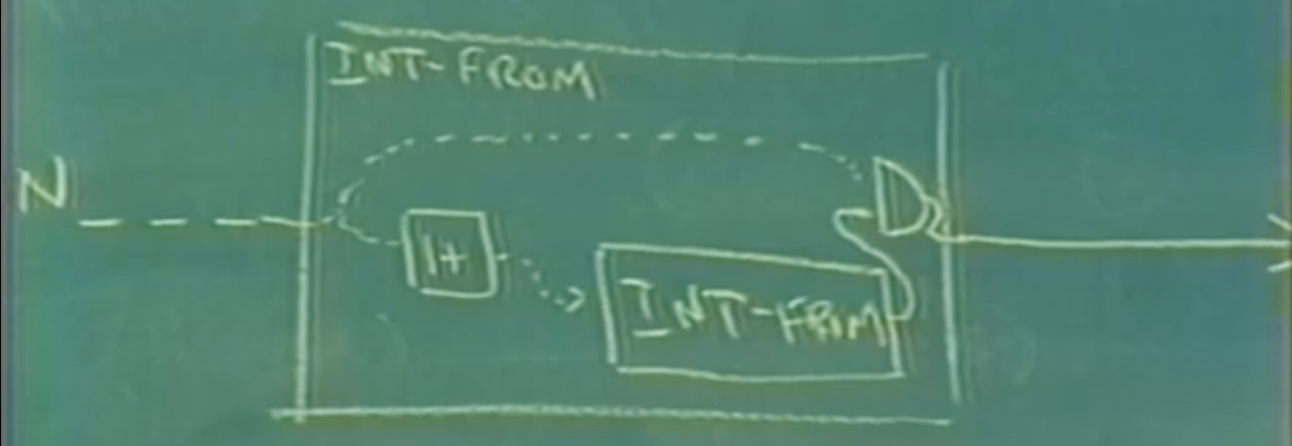 INT-FROM
N
1+
INT-FROM